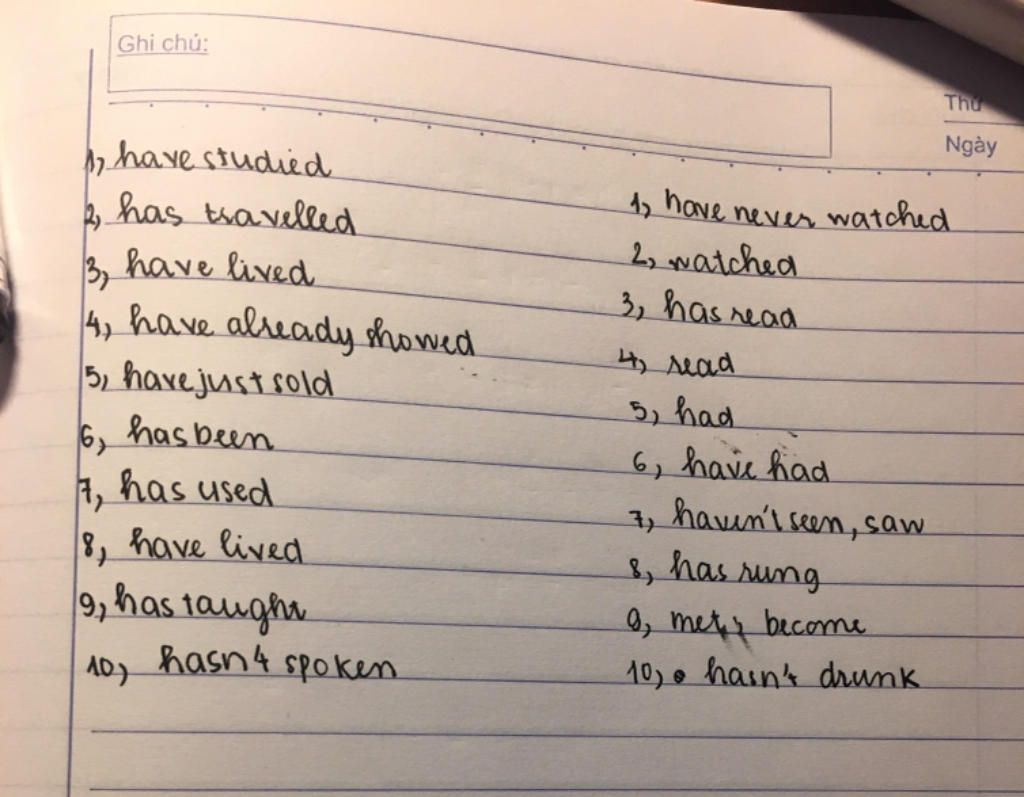 Ghi chú:
Thứ
Ngày
1, have studied
2, has travelled
3, have lived
4, have already showed
5, have just sold
6, has been
7, has used
8, have lived
9, has taught
10, hasn't spoken
1, have never watched
2, watched
3, has read
4, read
5, had
6, have had
7, haven't seen, saw
8, has rung
9, met, become
10, hasn't drunk